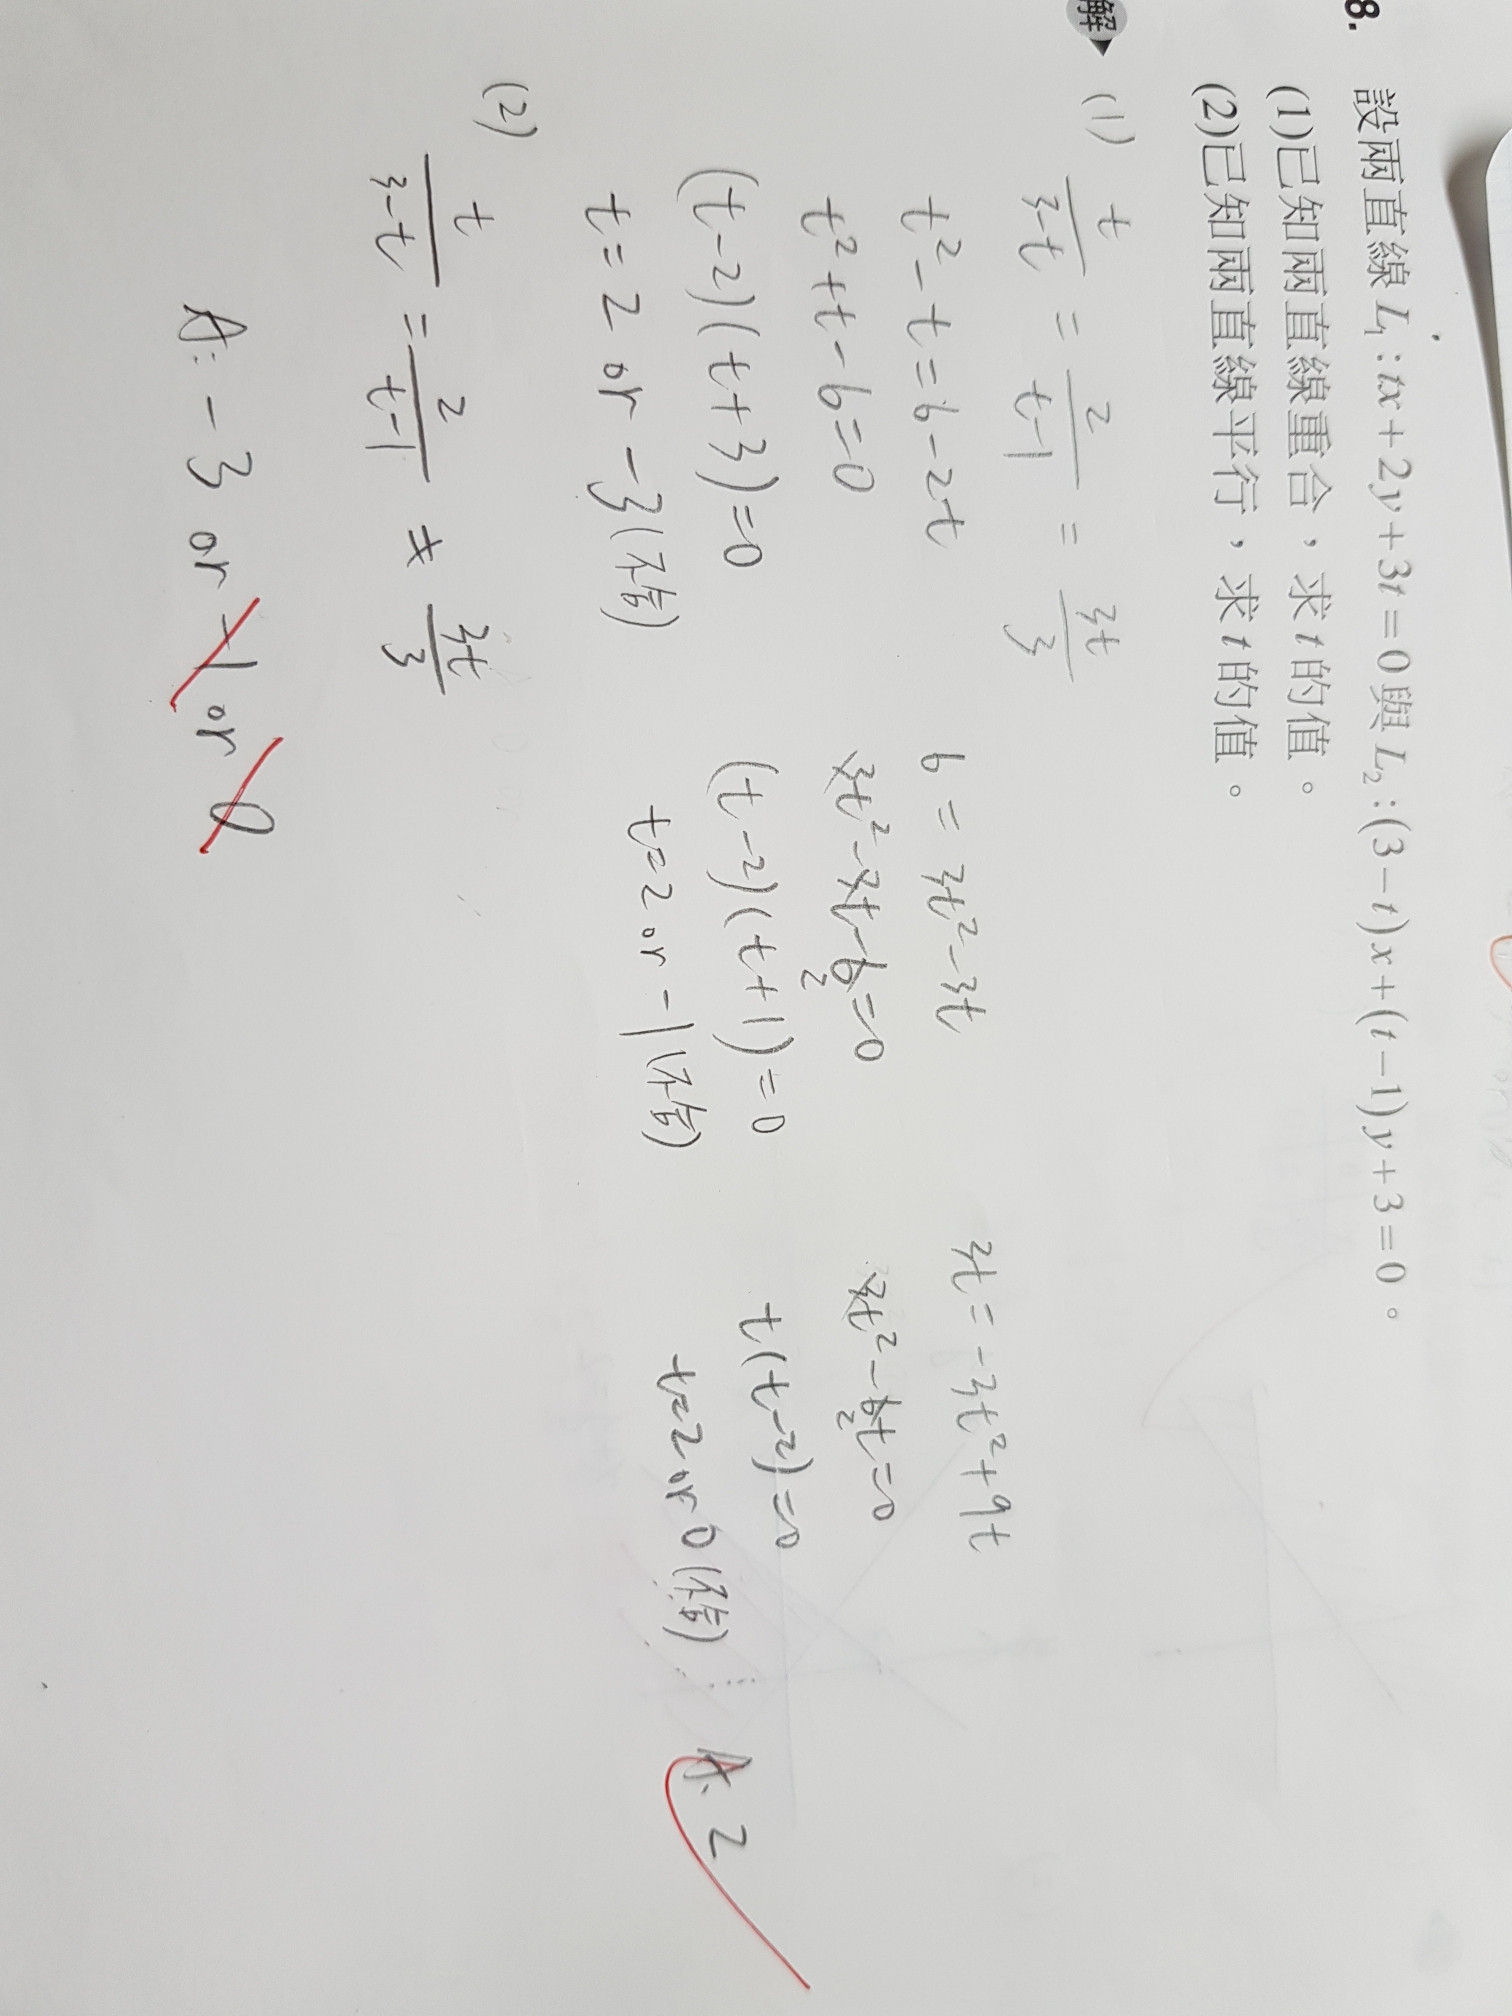 8. 設兩直線 L₁:tx+2y+3t=0與 L₂:(3-t)x+(t-1)y+3=0。
(1)已知兩直線重合，求 t 的值。
(2)已知兩直線平行，求 t 的值。
解 (1) t/(3-t) = 2/(t-1) = 3t/3
t²-t=6-2t
t²+t-6=0
(t-2)(t+3)=0
t=2 or -3(不合)
6=3t²-3t
3t²-3t-6=0
2
(t-2)(t+1)=0
t=2 or -1(不合)
3t=-3t²+9t
3t²-6t=0
2
t(t-2)=0
t=2 or 0(不合)
A: 2
(2) t/(3-t) = 2/(t-1) ≠ 3t/3
A: -3 or -1 or 0